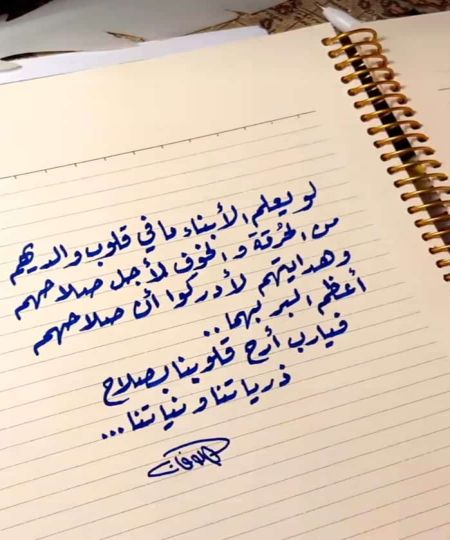 لو يعلم الأبناء ما في قلوب والديهم
من الحُرقة والخوف لأجل صلاحهم
وهدايتهم لأدركوا أن صلاحهم
أعظم البر بهما..
فيارب أرح قلوبنا بصلاح
ذرياتنا ونياتنا...